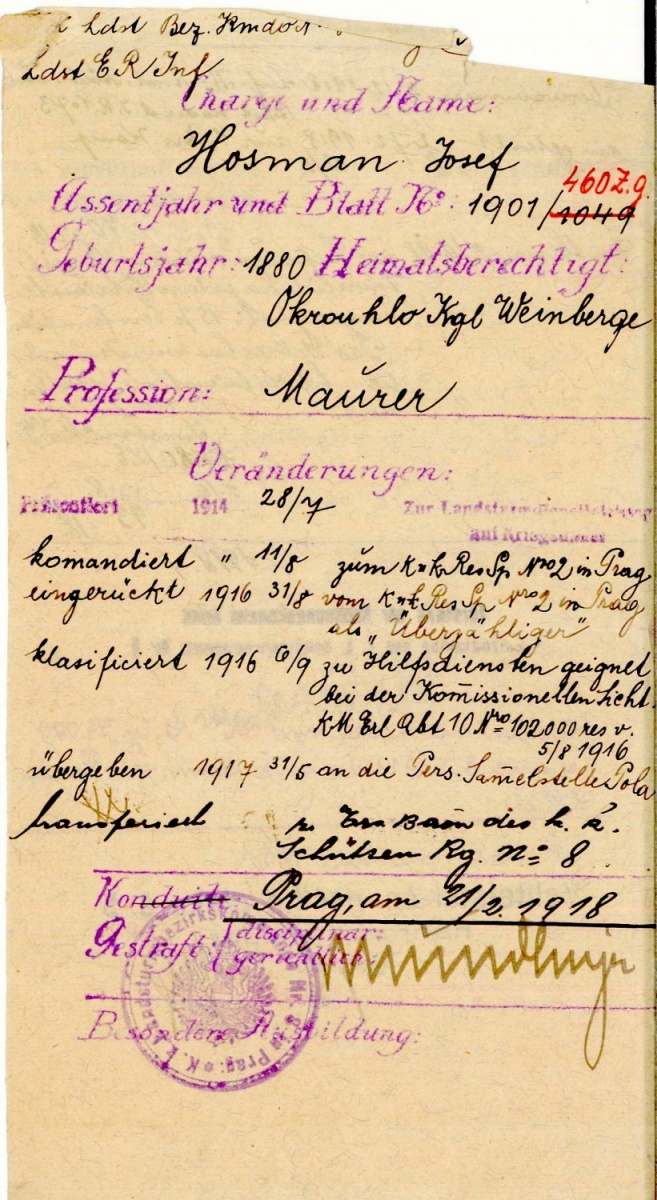 k Ldst Bez. Kmdo
Ldst E R Inf
Charge und Name:
Hosman Josef
460 Z.g.
Assentjahr und Blatt No: 1901/1049
Geburtsjahr: 1880 Heimatsberechtigt:
Okrouhlo Kgl Weinberge
Profession: Maurer
Veränderungen:
Präsentiert 1914 28/7 Zur Landsturmdienstleistung
auf Kriegsdauer
komandiert " 11/8 zum K u k Res Sp Nro 2 in Prag
eingerückt 1916 31/8 vom K u k Res Sp Nro 2 in Prag
als „Überzähliger"
klasificiert 1916 6/9 zu Hilfsdiensten geignet
bei der Kom̄issionellen Sicht.
KM Erl Abt 10 Nro 102000 res v.
5/8 1916
übergeben 1917 31/5 an die Pers. Sam̄elstelle Pola
transferiert z. Ers Baon des k. k.
Schützen Rg. No 8
Konduite: Prag, am 21/2. 1918
Gestraft: disciplinär:
gerichtlich:
Besondere Ausbildung: